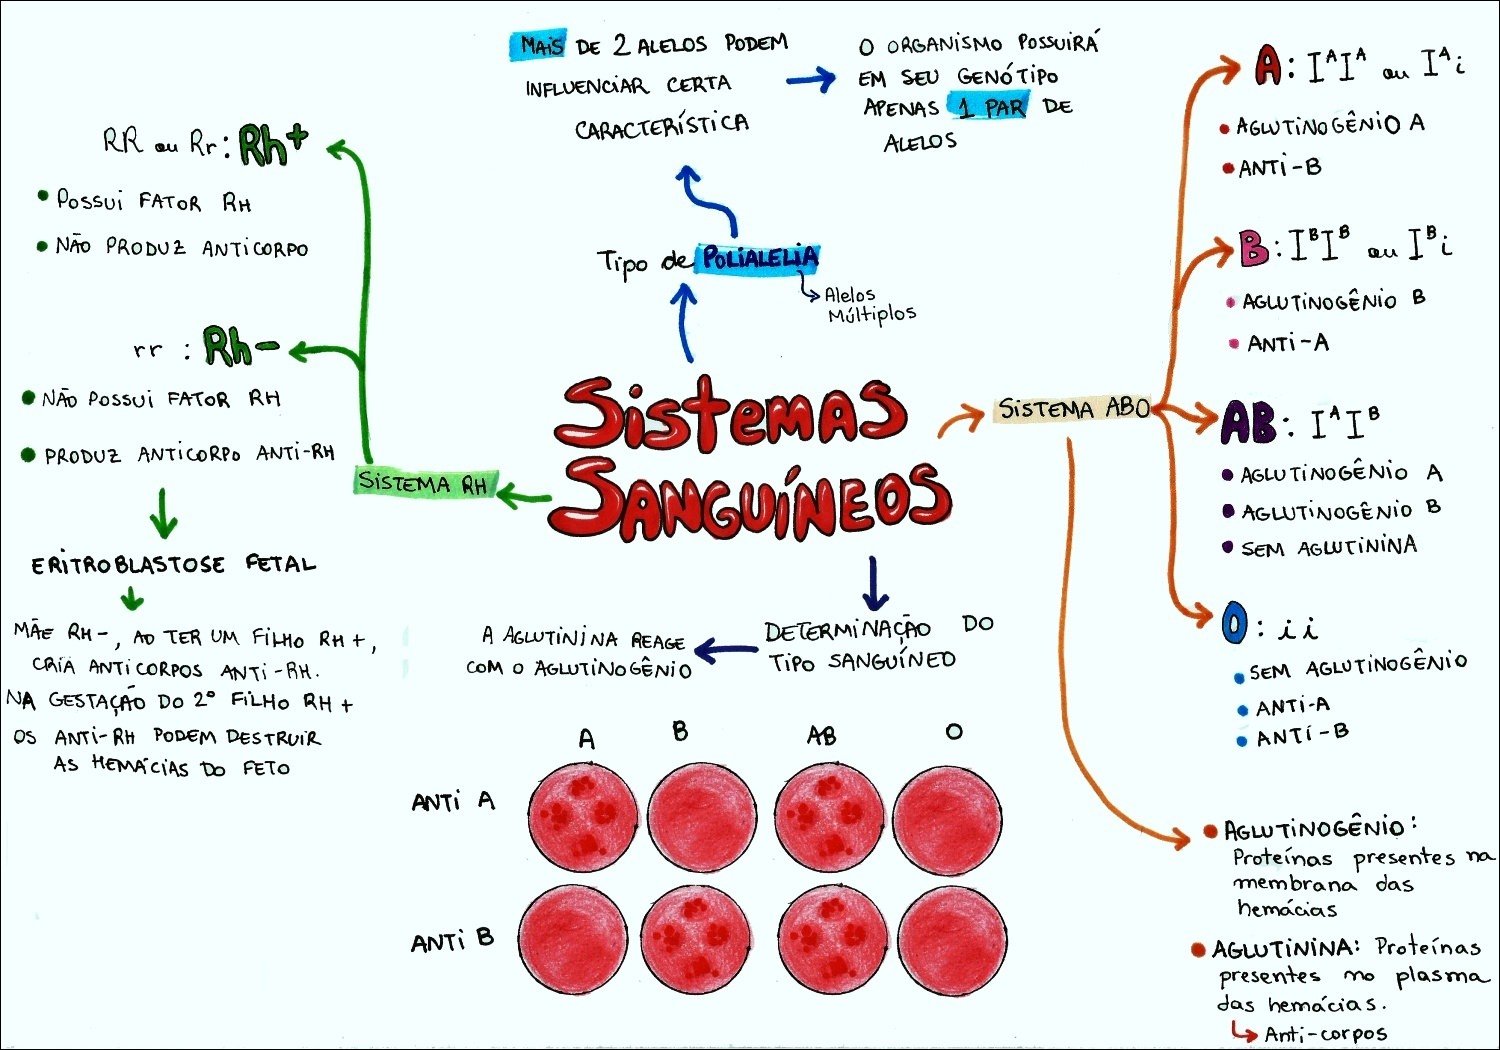 Sistemas
Sanguíneos
Tipo de Polialelia
Alelos
Múltiplos
Mais de 2 alelos podem
influenciar certa
característica
O organismo possuirá
em seu genótipo
apenas 1 par de
alelos
Sistema ABO
A: IᴬIᴬ ou Iᴬi
• Aglutinogênio A
• Anti-B
B: IᴮIᴮ ou Iᴮi
• Aglutinogênio B
• Anti-A
AB: IᴬIᴮ
• Aglutinogênio A
• Aglutinogênio B
• Sem aglutinina
O: ii
• Sem aglutinogênio
• Anti-A
• Anti-B
• Aglutinogênio:
Proteínas presentes na
membrana das
hemácias
• Aglutinina: Proteínas
presentes no plasma
das hemácias.
Anti-corpos
Determinação do
tipo sanguíneo
A aglutinina reage
com o aglutinogênio
A B AB O
Anti A
Anti B
Sistema RH
RR ou Rr: Rh+
• Possui fator RH
• Não produz anticorpo
rr : Rh-
• Não possui fator RH
• Produz anticorpo anti-RH
Eritroblastose fetal
Mãe RH-, ao ter um filho RH+,
cria anticorpos anti-RH.
Na gestação do 2º filho RH+
os anti-RH podem destruir
as hemácias do feto